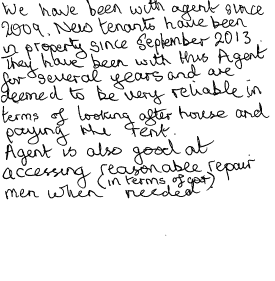 We have been with agent since
2009. New tenants have been
in property since September 2013.
They have been with this Agent
for several years and are
deemed to be very reliable in
terms of looking after house and
paying the rent.
Agent is also good at
accessing reasonable repair
(in terms of cost)
men when needed